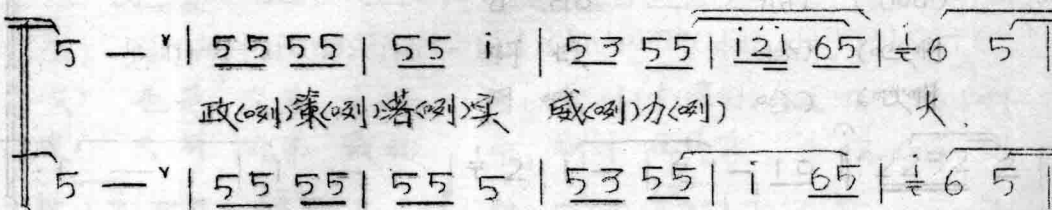 5 — ˅ | 5 5 5 5 | 5 5 i | 5 3 5 5 | i 2 i 6 5 | i 6 5 |
政(咧)策(咧)落(咧)实 威(咧)力(咧) 大
5 — ˅ | 5 5 5 5 | 5 5 5 | 5 3 5 5 | i 6 5 | i 6 5 |